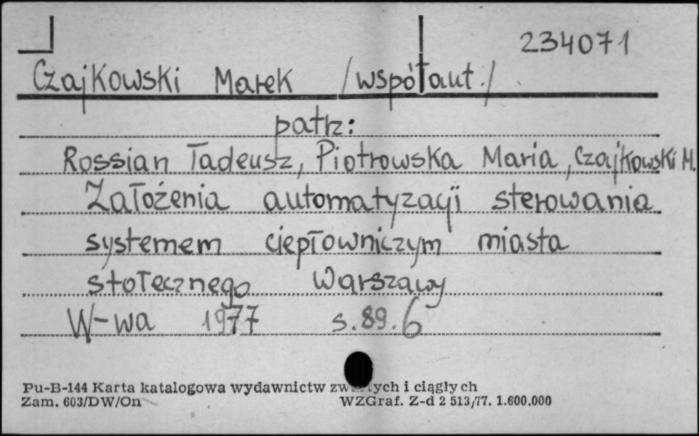 234071
Czajkowski Marek /współaut./
patrz:
Rossian Tadeusz, Piotrowska Maria, Czajkowski M.
Założenia automatyzacji sterowania
systemem ciepłowniczym miasta
stołecznego Warszawy
W-wa 1977 s.89.6
Pu-B-144 Karta katalogowa wydawnictw zwartych i ciągłych
Zam. 603/DW/On WZGraf. Z-d 2 513/77. 1.600.000